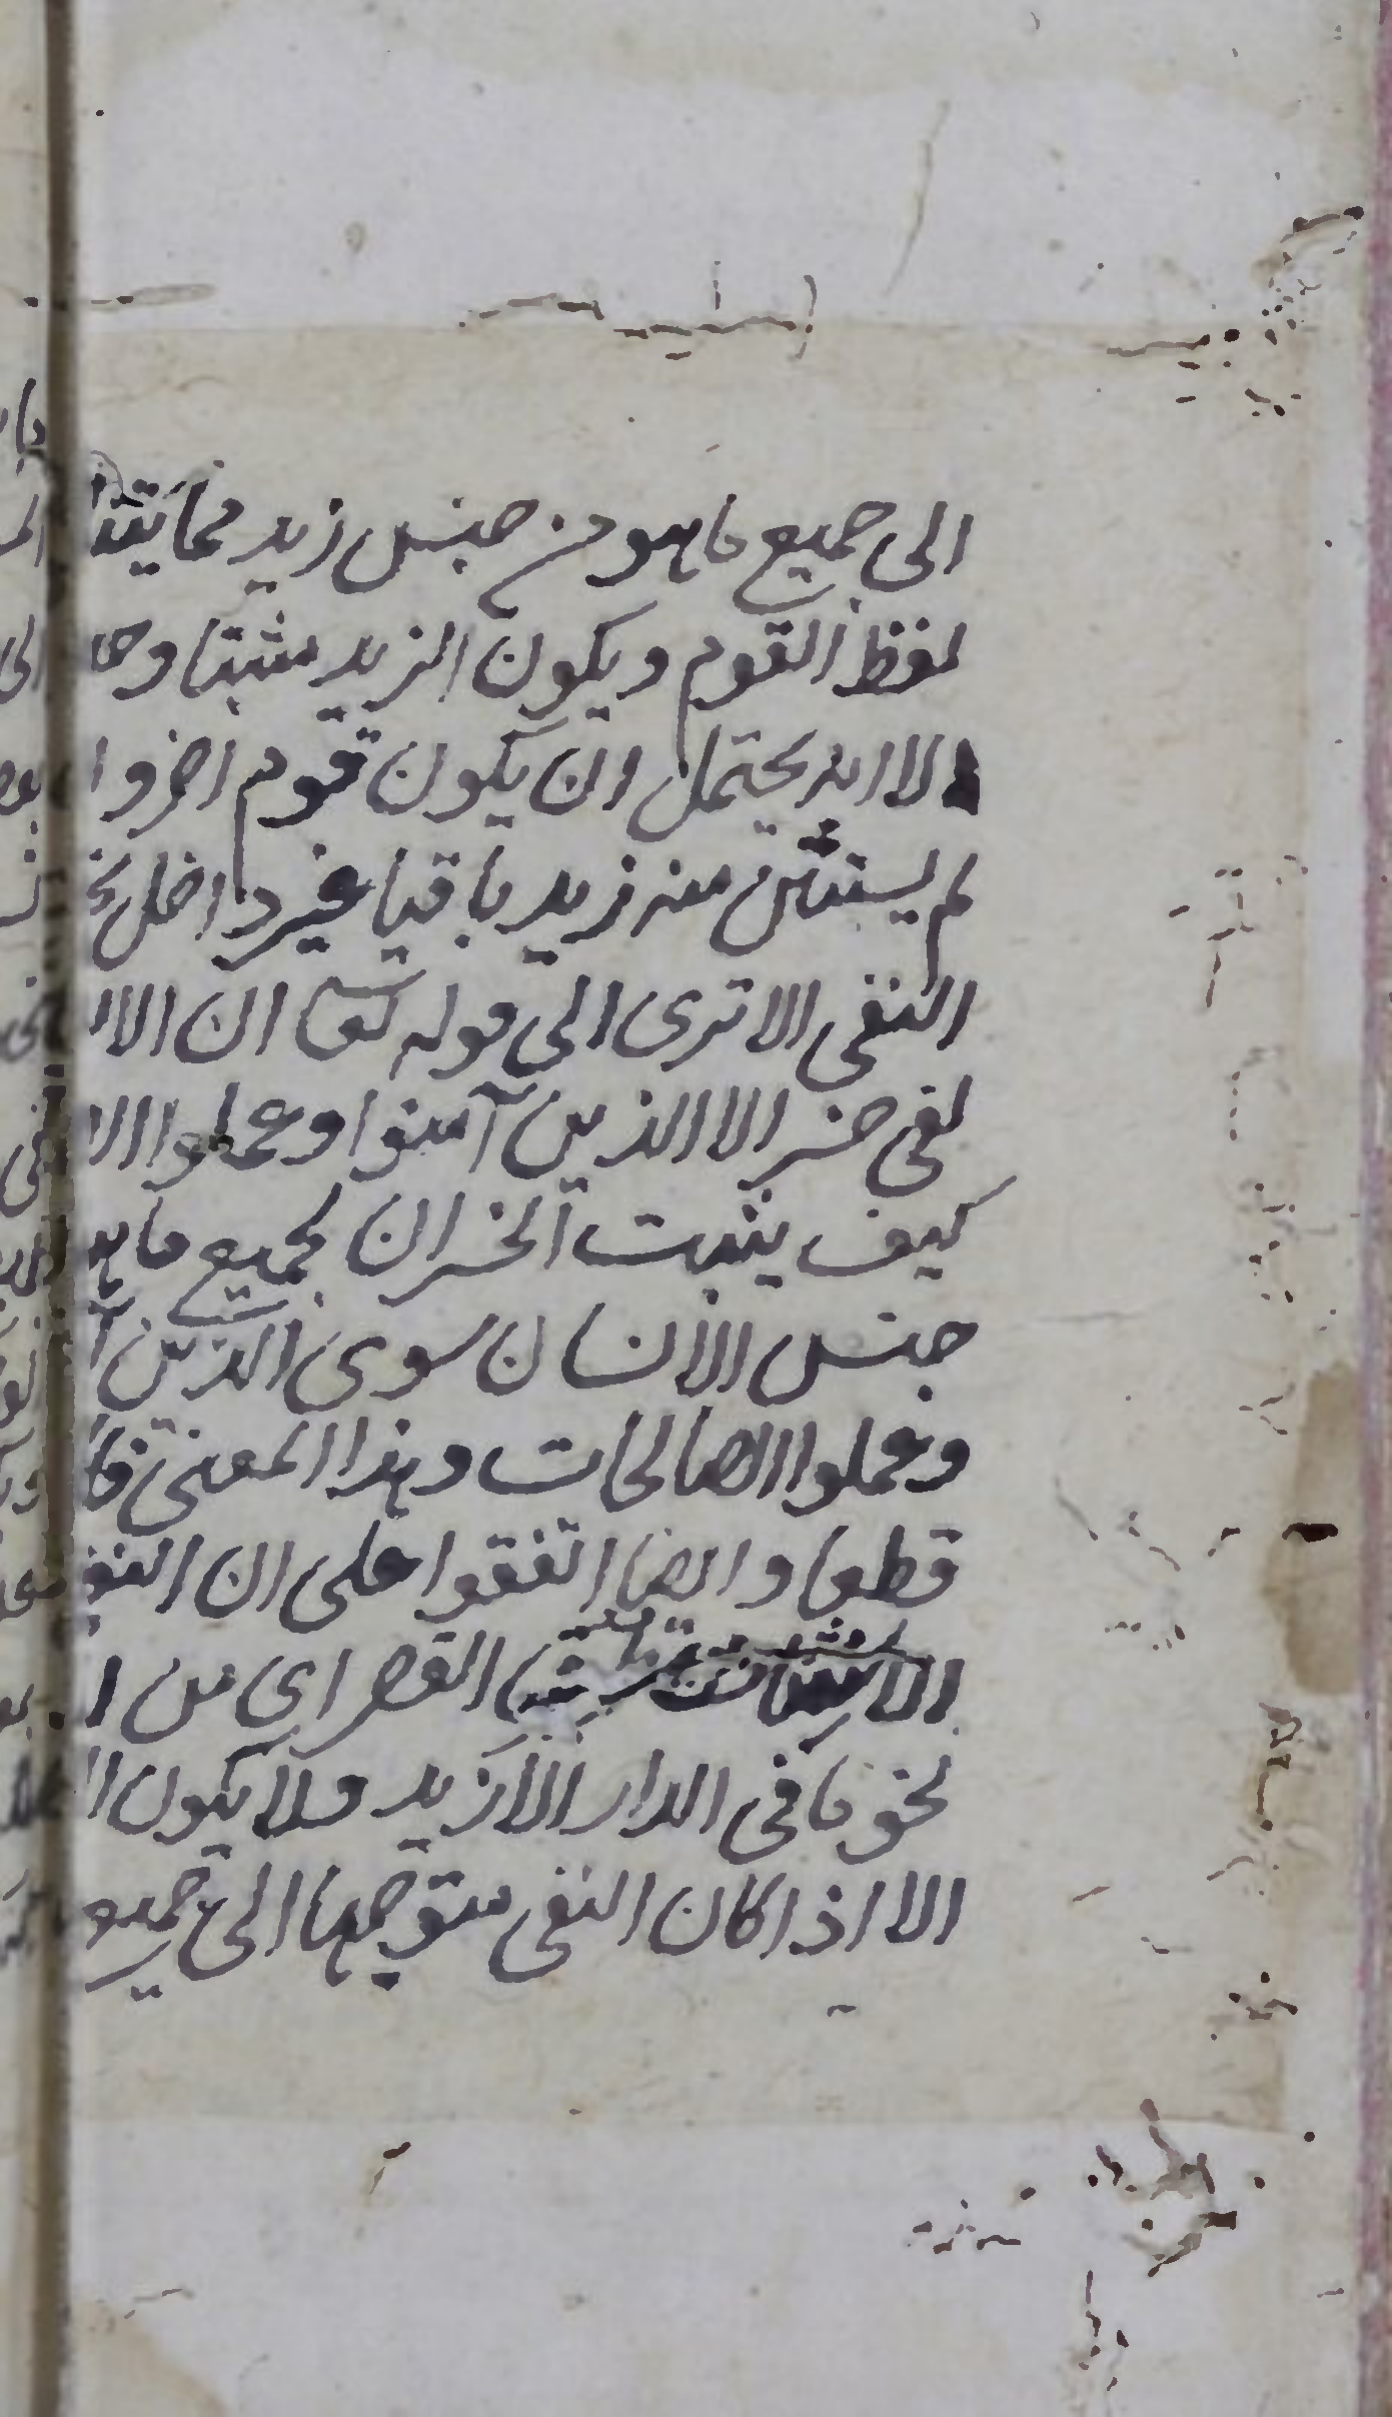 الى جميع ما هو من جنس زيد مما يتنا
لفظ القوم ويكون الزيد مثبتا وحا
الا انه يحتمل ان يكون قوم اخر وا
لم يستثن منه زيد باقيا غير داخل تح
النفى الا ترى الى قوله تعا ان الا
لفى خسر الا الذين آمنوا وعملوا ال
كيف يثبت الخسران لجميع ما هو
جنس الانسان سوى الذين آ
وعملوا الصالحات وهذا المعنى
قطعا وايضا اتفقوا على ان النفى
القصر اى من
نحو ما فى الدار الا زيد ولا يكون ا
الا اذا كان النفى متوجها الى جميع